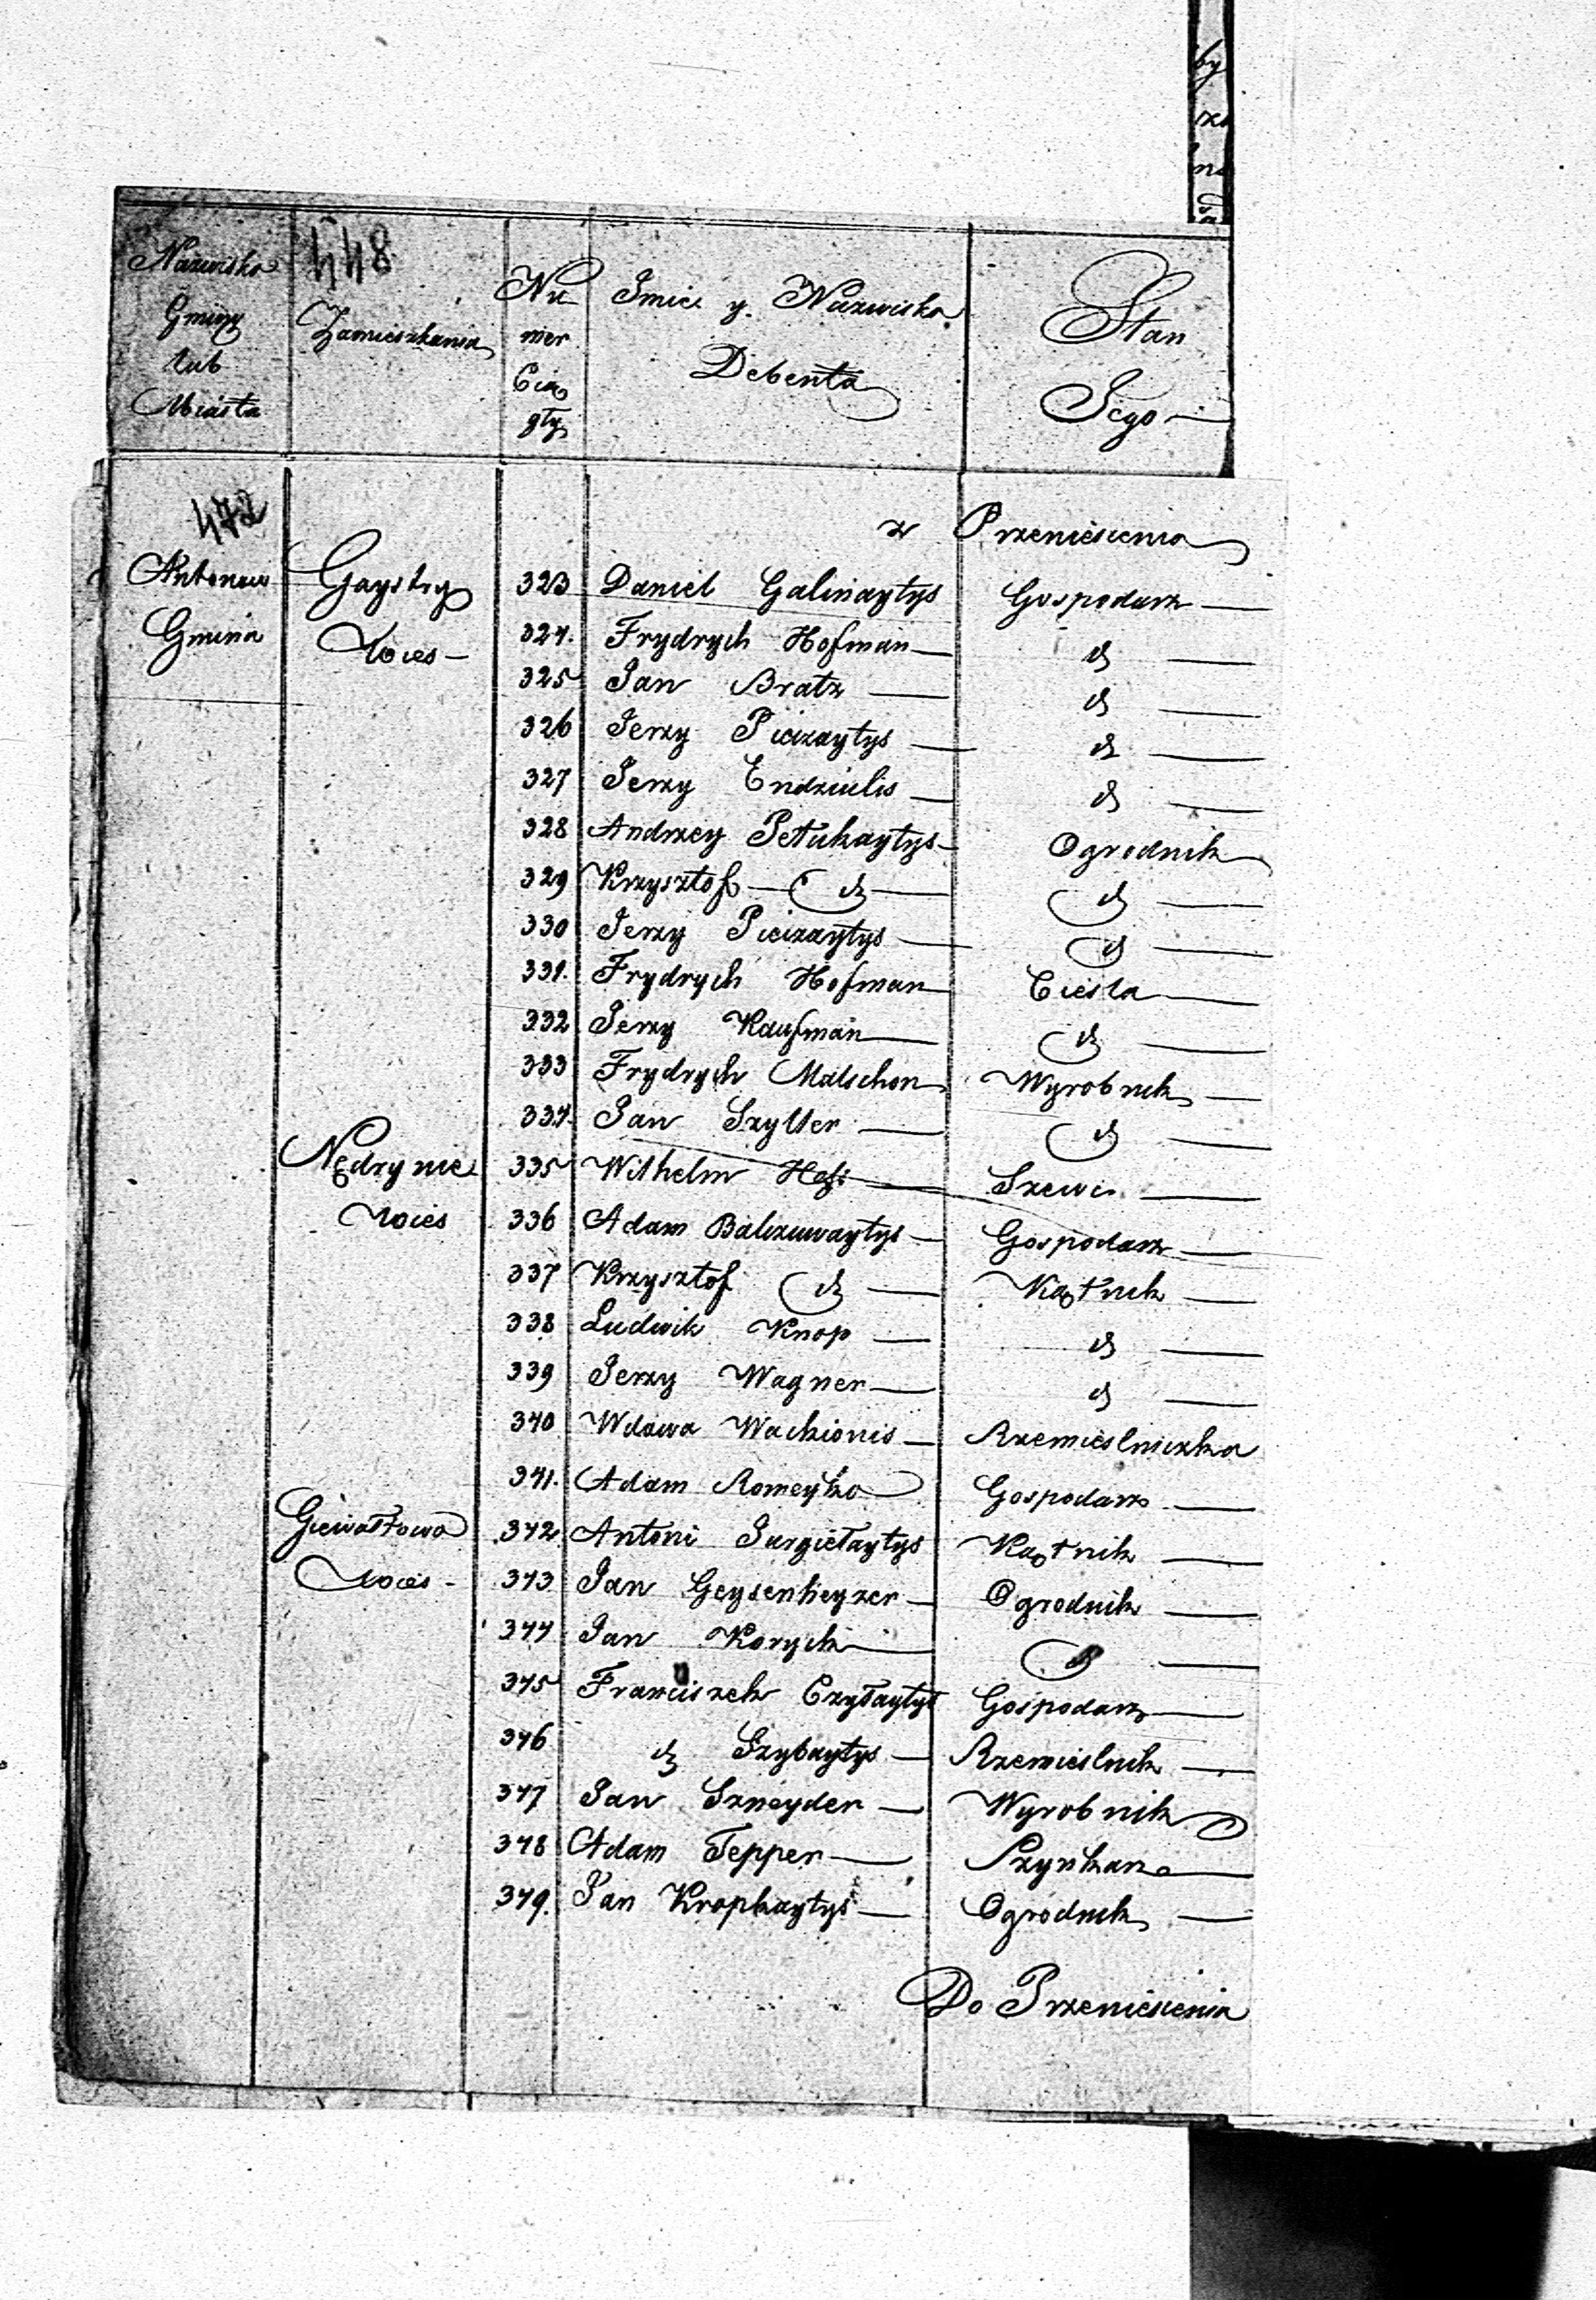 Nazwisko Gminy lub Miasta
448
Zamieszkania
Nu mer Cią gły
Imie y. Nazwisko Debenta
Stan Jego
472
z Przeniesienia
Antonow Gaystry 323 Daniel Galinaytys Gospodarz
Gmina Wieś 324. Frydrych Hofman d
325 Jan Bratz d
326 Jerzy Piczaytys d
327 Jerzy Endziulis d
328 Andrzey Petukaytys Ogrodnik
329 Krzysztof d d
330 Jerzy Piczaytys d
331. Frydrych Hofman Ciesla
332 Jerzy Kaufman d
333 Frydrych Malschon Wyrobnik
334. Jan Szyller d
Nędrynie 335 Wilhelm Szewc
Wieś 336 Adam Balczuwaytys Gospodarz
337 Krzysztof d Kątnik
338 Ludwik Knop d
339 Jerzy Wagner d
340 Wdowa Wachionis Rzemieslniczka
341. Adam Romeyko Gospodarz
Giewałtowo 342 Antoni Jurgiełaytys Kątnik
Wieś 343 Jan Geysenheyzer Ogrodnik
344 Jan Korych d
345 Franciszek Czyżaytys Gospodarz
346 d Szybaytys Rzemieslnik
347 Jan Szneyder Wyrobnik
348 Adam Tepper Szynkarz
349. Jan Kropkaytys Ogrodnik
Do Przeniesienia